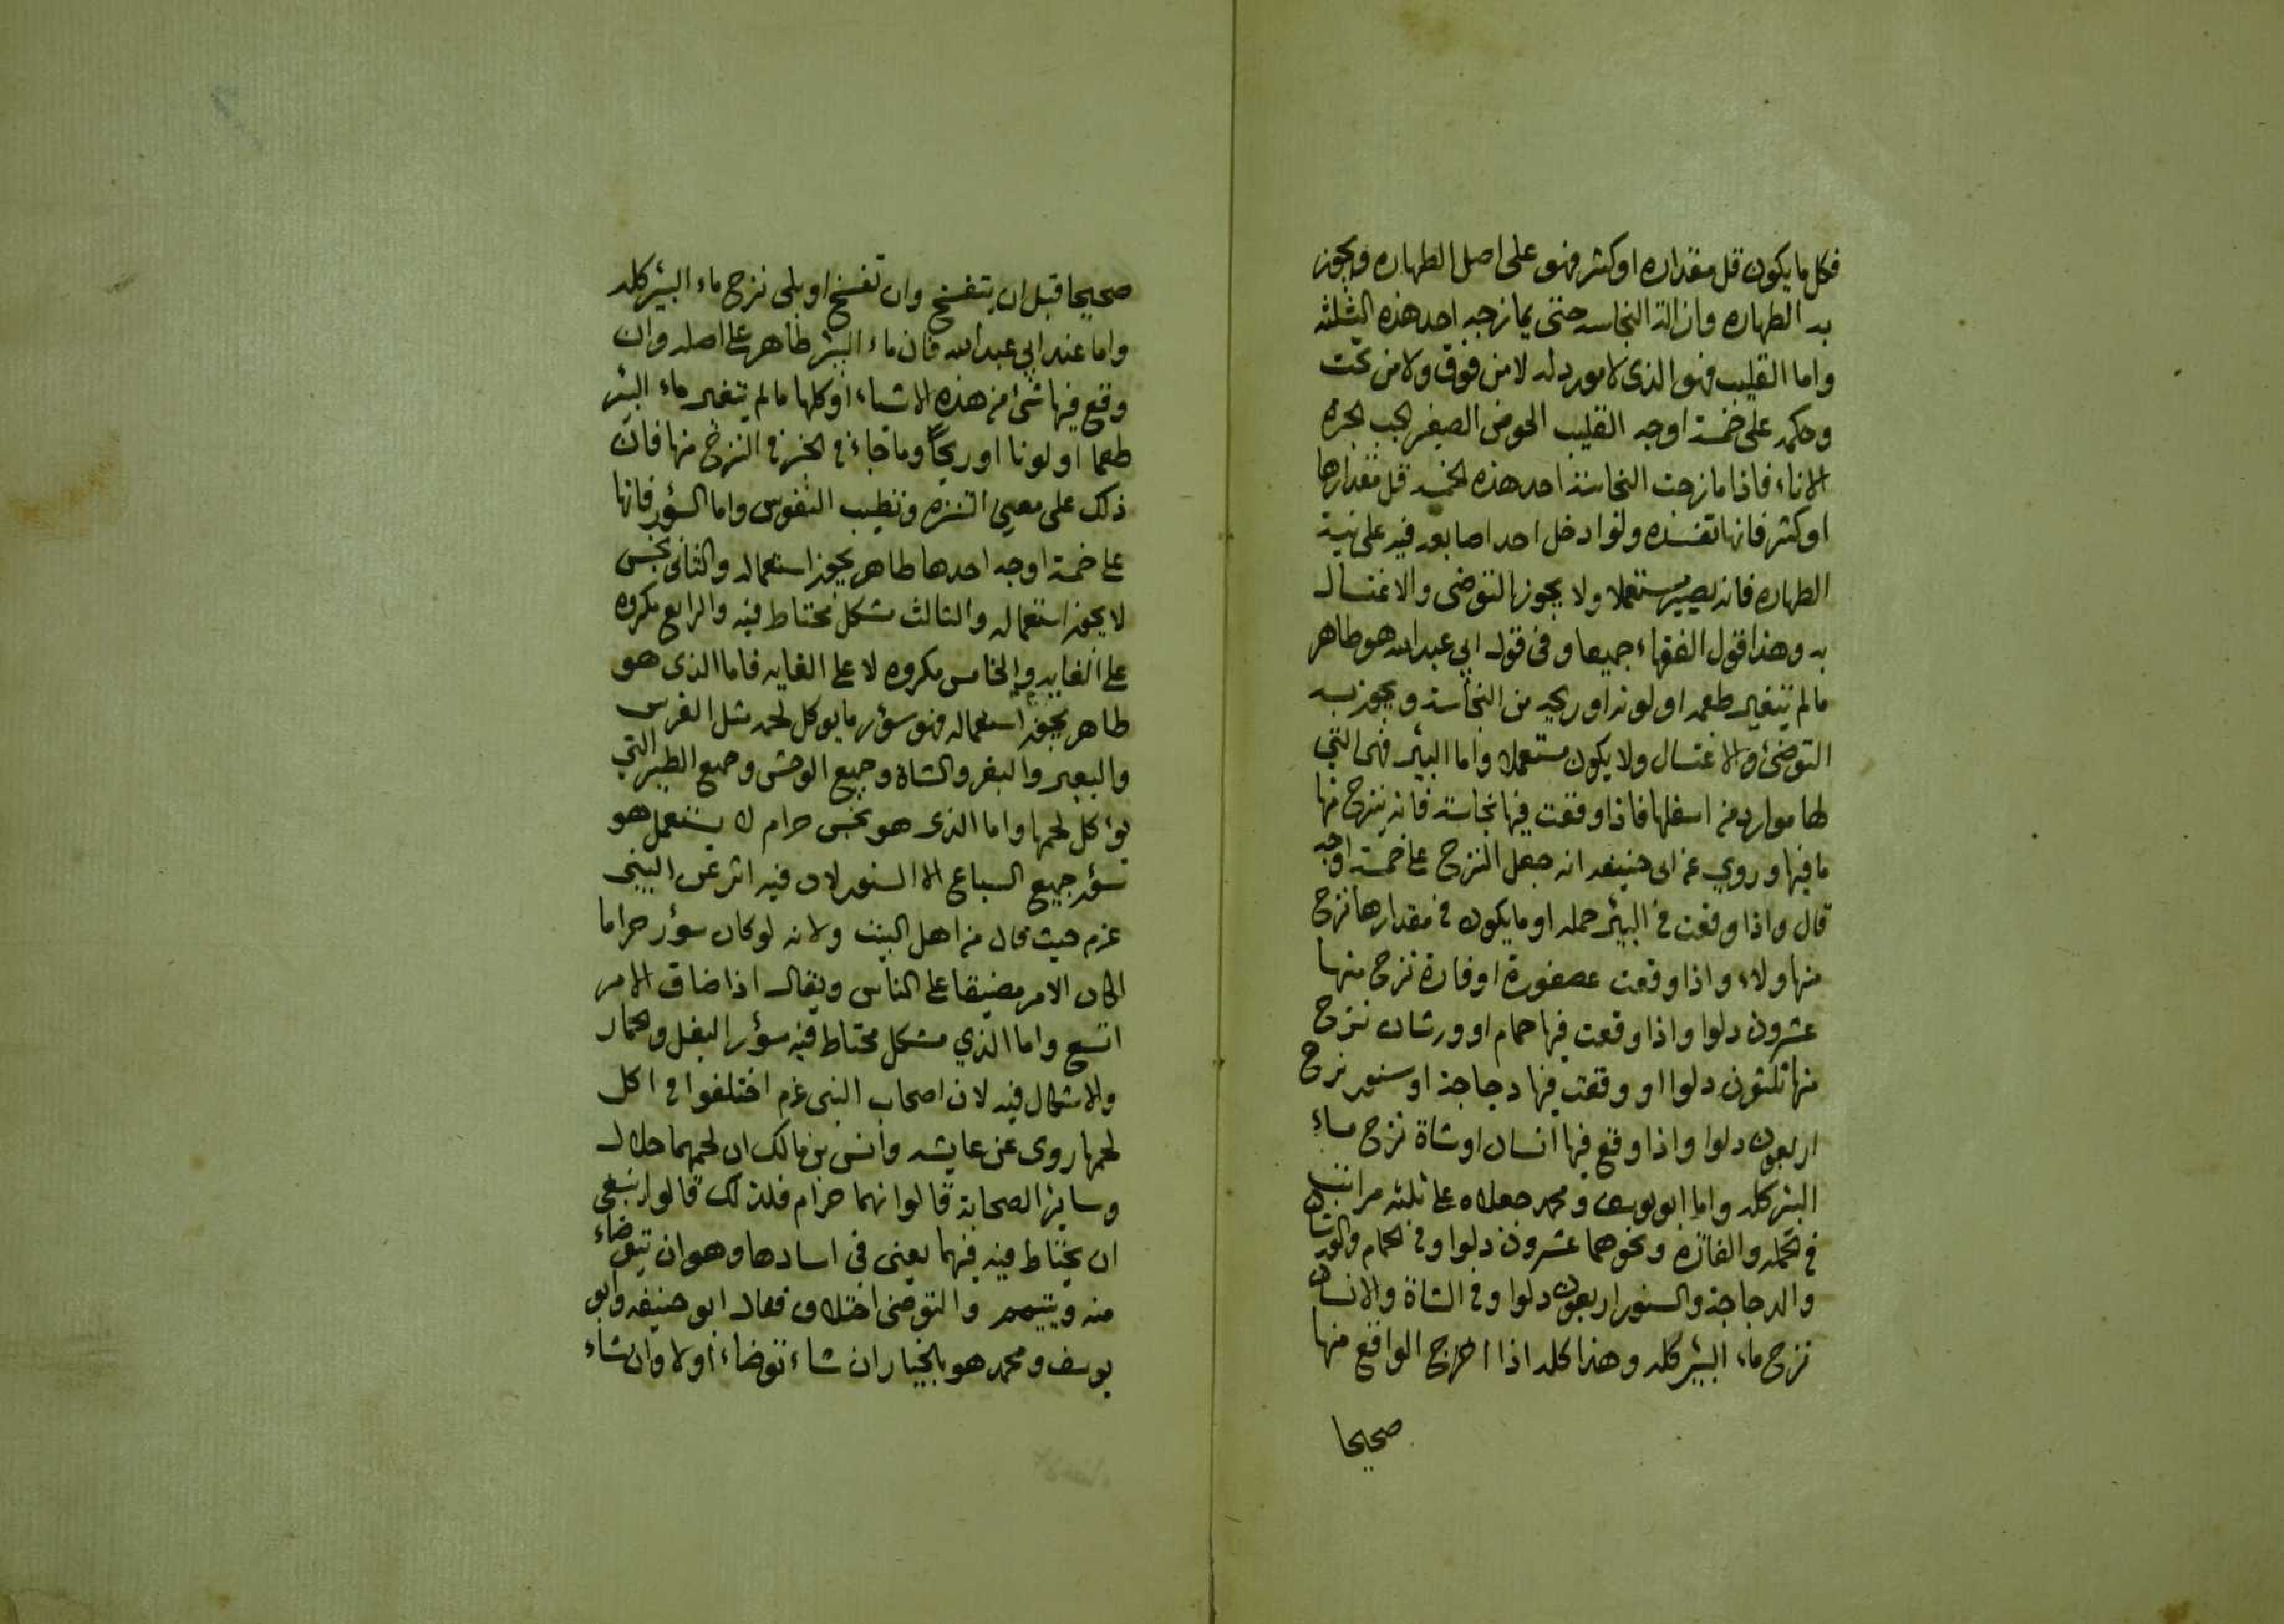 فكل ما يكون قل مقداره او كثر فهو على اصل الطهاره ويجوز
به الطهاره وازالة النجاسه حتى يمازجه احد هذه الثلثه
واما القليب فهو الذى لا مورد له لا من فوق ولا من تحت
وحكمه على خمسة اوجه القليب الحوض الصغير الجب الجره
الاناء فاذا مازجت النجاسة احد هذه الخمسه قل مقدارها
او كثر فانها تفسده ولو ادخل احد اصابعه فيه على نية
الطهاره فانه يصير مستعملا ولا يجوز التوضى والاغتسال
به وهذا قول الفقهاء جميعا وفى قول ابي عبدالله هو طاهر
ما لم يتغير طعمه او لونه او ريحه من النجاسة ويجوز به
التوضئ والاغتسال ولا يكون مستعملا واما البئر فهى التي
لها موارد من اسفلها فاذا وقعت فيها نجاسة فانه ينزح منها
ما فيها وروي عن ابى حنيفه انه جعل النزح على خمسة اوجه
قال واذا وقعت فى البئر حمله او ما يكون فى مقدارها نزح
منها ولاء واذا وقعت عصفورة او فارة نزح منها
عشرون دلوا واذا وقعت فيها حمام او ورشان نزح
منها ثلثون دلوا او وقعت فيها دجاجة او سنور نزح
اربعون دلوا واذا وقع فيها انسان او شاة نزح ماء
البئر كله واما ابو يوسف ومحمد جعلاه على ثلثه مراتب
فى الحمله والفاره ونحوهما عشرون دلوا وفى الحمام والورشان
والدجاجة والسنور اربعون دلوا وفى الشاة والانسان
نزح ماء البئر كله وهذا كله اذا اخرج الواقع منها
صحيحا
صحيحا قبل ان يتفسخ وان تفسخ او بلى نزح ماء البئر كله
واما عند ابي عبدالله فان ماء البئر طاهر على اصله وان
وقع فيها شئ من هذه الاشياء او كلها ما لم يتغير ماء البئر
طعما او لونا او ريحاً وما جاء فى الخبر فى النزح منها فان
ذلك على معنى التنزه وتطيب النفوس واما السؤر فانها
على خمسة اوجه احدها طاهر يجوز استعماله والثانى نجس
لا يجوز استعماله والثالث مشكل محتاط فيه والرابع مكروه
على الغايه والخامس مكروه لا على الغايه فاما الذى هو
طاهر يجوز استعماله فهو سؤر ما يوكل لحمه مثل الفرس
والبعير والبقر والشاة وجميع الوحش وجميع الطير التي
يواكل لحمها واما الذى هو نجس حرام لا يستعمل هو
سؤر جميع السباع الا السنور لان فيه اثر عن النبى
عزم حيث قال من اهل البيت ولانه لو كان سؤر حراما
لكان الامر مضيقا على الناس ويقال اذا ضاق الامر
اتسع واما الذي مشكل محتاط فيه سؤر البغل والحمار
والاشكال فيه لان اصحاب النبى عزم اختلفوا فى اكل
لحمها روى عن عايشه وانس بن مالك ان لحمهما حلال
وساير الصحابة قالوا انهما حرام فلذلك قالوا ينبغى
ان يحتاط فيه فيهما يعنى فى اسادها وهو ان تتوضاء
منه ويتيمم والتوضى اختلاف فقال ابو حنيفه وابو
يوسف ومحمد هو بالخيار ان شاء توضاء اولا وان شاء